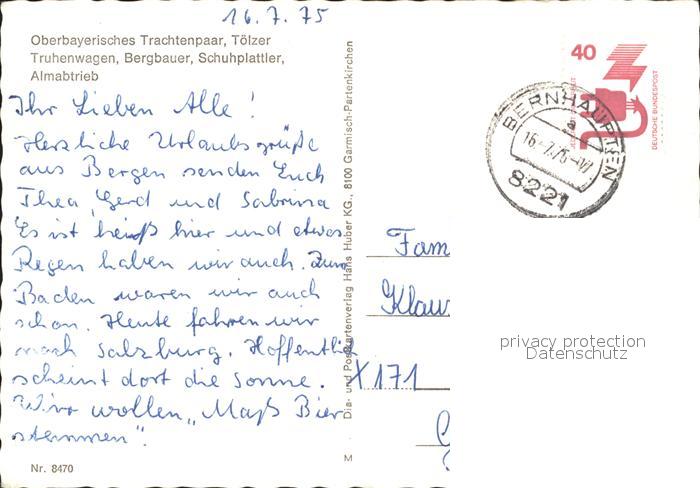 16.7.75
Oberbayerisches Trachtenpaar, Tölzer
Truhenwagen, Bergbauer, Schuhplattler,
Almabtrieb
Ihr Lieben Alle!
Herzliche Urlaubsgrüße
aus Bergen senden Euch
Thea, Gerd und Sabrina
Es ist heiß hier und etwas
Regen haben wir auch. Zum
Baden waren wir auch
schon. Heute fahren wir
nach Salzburg. Hoffentlich
scheint dort die Sonne.
Wir wollen „Maß Bier
stemmen".
Nr. 8470
Dia- und Postkartenverlag Hans Huber KG., 8100 Garmisch-Partenkirchen
M
40
DEUTSCHE BUNDESPOST
BERNHAUPTEN
a
16.7.75-17
8221
Fam
Klau
X171
privacy protection
Datenschutz